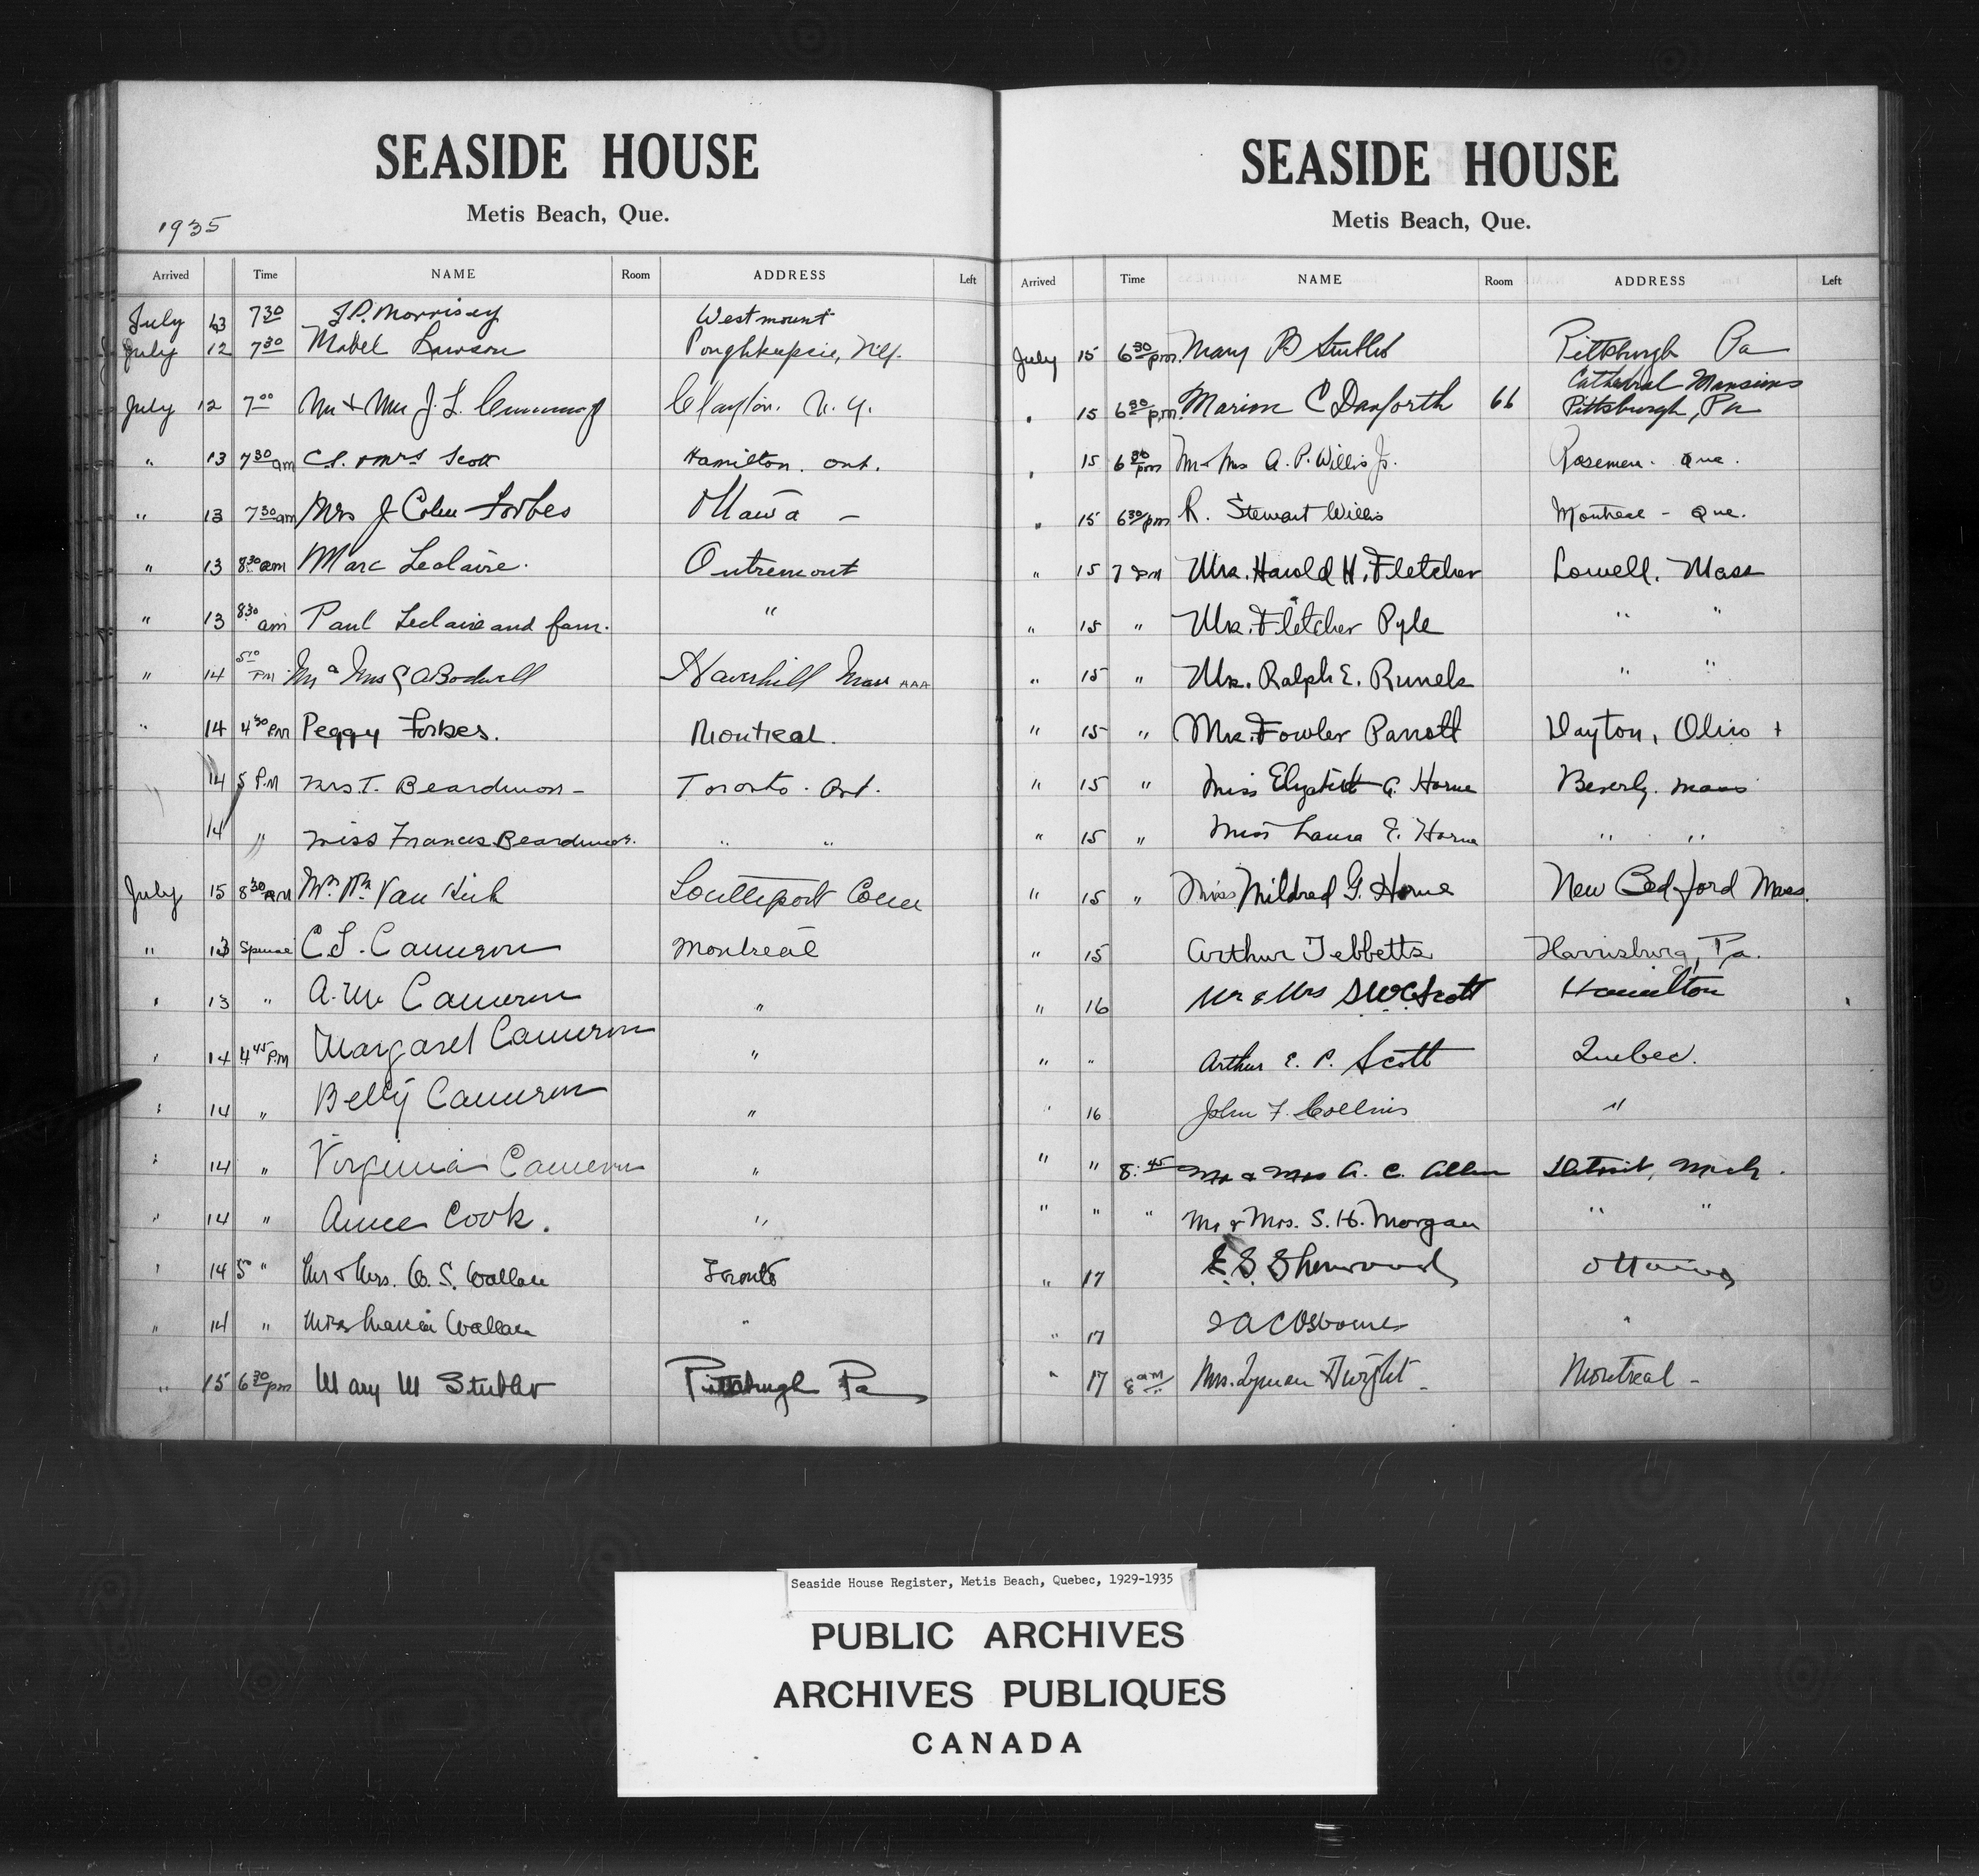 SEASIDE HOUSE
Metis Beach, Que.
1935
Arrived Time NAME Room ADDRESS Left
July 13 7 30 J.P. Morrisey Westmount
July 12 7 30 Mabel Lawson Poughkeepsie, N.Y.
July 12 7 00 Mr + Mrs J. L. Cummings Clayton. N. Y.
" 13 7 30 am C.S. + Mrs Scott Hamilton. Ont.
" 13 7 30 am Mrs J Colin Forbes Ottawa —
" 13 8 30 am Marc Leclaire. Outremont
" 13 8 30 am Paul Leclaire and fam. "
" 14 5 10 PM Mr & Mrs Bodwell Haverhill Mass AAA
" 14 4 30 PM Peggy Forbes. Montreal.
14 5 P.M Mrs. T. Beardmore - Toronto. Ont.
14 " Miss Frances Beardmore. " "
July 15 8 30 AM Van Kirk Southport Conn
" 13 C.S. Cameron Montreal
" 13 " A. M. Cameron "
" 14 4 45 P.M Margaret Cameron "
" 14 " Betty Cameron "
" 14 " Virginia Cameron "
" 14 " Cook. "
" 14 5 " Mr & Mrs. S. Wallace Toronto
" 14 " Miss Wallace "
" 15 6 30 pm Mary M Stubbs Pittsburgh Pa
SEASIDE HOUSE
Metis Beach, Que.
Arrived Time NAME Room ADDRESS Left
July 15 6 30 pm. Mary B Stubbs Pittsburgh Pa
Cathedral Mansions
" 15 6 30 p.m. Marion C Danforth 66 Pittsburgh, Pa
" 15 6 30 pm Mr + Mrs A. P. Willis Jr. Rosemere. Que.
" 15 6 30 pm R. Stewart Willis Montreal - Que.
" 15 7 PM Mrs. Harold H. Fletcher Lowell. Mass
" 15 " Mrs. Fletcher Pyle " "
" 15 " Mrs. Ralph E. Runels " "
" 15 " Mrs. Fowler Parrott Dayton, Ohio +
" 15 " Miss Elizabeth G. Horne Beverly. Mass
" 15 " Miss Laura E. Horne " "
" 15 " Miss Mildred G. Horne New Bedford Mass.
" 15 Arthur Tebbetts Harrisburg, Pa.
" 16 Mr & Mrs Scott Hamilton
" " Arthur E. P. Scott Quebec.
" 16 John F. Collins "
" " 8:45 Mr & Mrs A. C. Allen Detroit, Mich.
" " " Mr & Mrs. S. H. Morgan " "
" 17 Sherwood Ottawa
" 17 Osborne "
" 17 8 am Mrs. Lyman Dwight - Montreal -
Seaside House Register, Metis Beach, Quebec, 1929-1935
PUBLIC ARCHIVES
ARCHIVES PUBLIQUES
CANADA